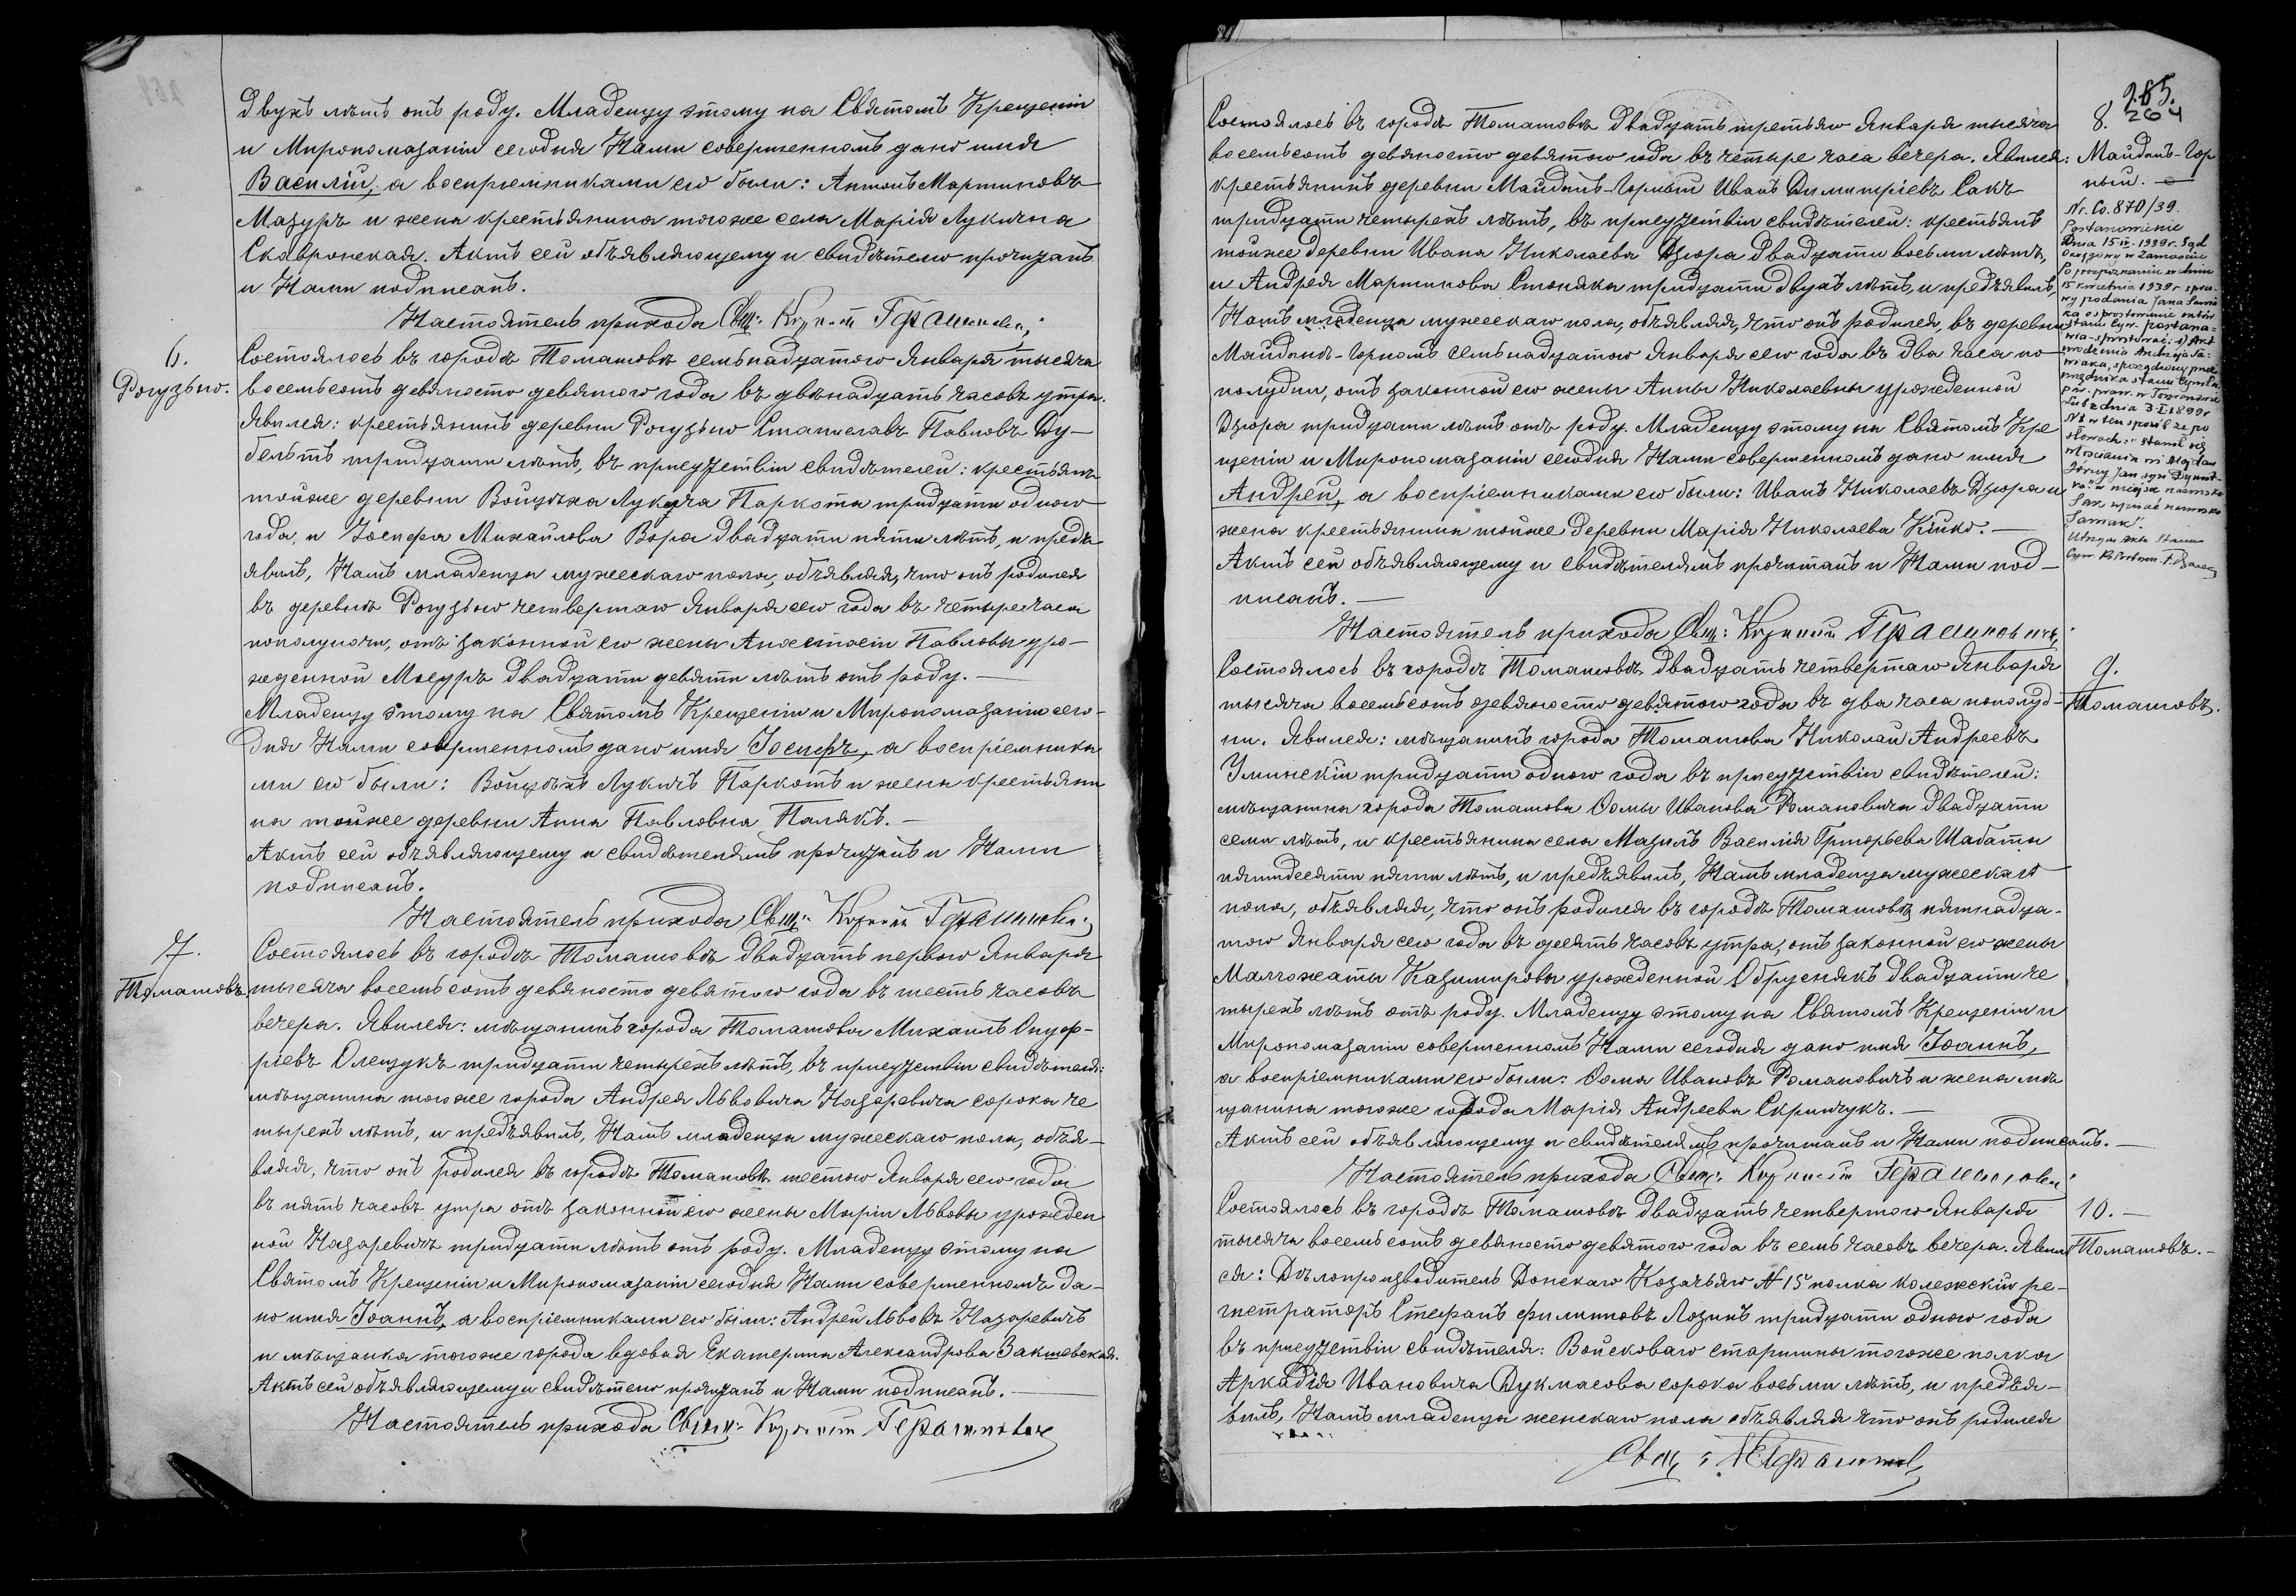 двухъ лѣтъ отъ роду. Младенцу этому на Святомъ Крещеніи
и Миропомазаніи сегодня Нами совершенномъ дано имя
Василій, а воспріемниками его были: Антонъ Мартиновъ
Мазуръ и жена крестьянина тогоже села Марія Лукична
Скавронская. Актъ сей объявляющему и свидѣтелю прочитанъ
и Нами подписанъ.
Настоятель прихода Свящ:
6.
Рогузьно.
Состоялось въ городѣ Томашовѣ семьнадцатого Января тысяча
восемьсотъ девяносто девятого года въ двѣнадцать часовъ утра.
Явился: крестьянинъ деревни Рогузьно Станиславъ Павловъ Ду-
бель тридцати лѣтъ, въ присутствіи свидѣтелей: крестьянъ
тойже деревни Войцѣха Лукича Паркота тридцати одного
года, и Іосифа Михайлова Вора двадцати пяти лѣтъ, и предъ
явилъ, Намъ младенца мужескаго пола, объявляя, что онъ родился
въ деревнѣ Рогузьно четвертаго Января сего года въ четыре часа
пополуночи, отъ законной его жены Анастасіи Павловы уро-
жденной Мазуръ двадцати девяти лѣтъ отъ роду.
Младенцу этому на Святомъ Крещеніи и Миропомазаніи сего-
дня Нами совершенномъ дано имя Іосифъ, а воспріемника
ми его были: Войцѣхъ Лукичъ Паркотъ и жена крестьяни
на тойже деревни Анна Павловна Палякъ.
Актъ сей объявляющему и свидѣтелямъ прочитанъ и Нами
подписанъ.
Настоятель прихода Свящ:
7.
Томашовъ.
Состоялось въ городѣ Томашовѣ двадцать первого Января
тысяча восемьсотъ девяносто девятого года въ шесть часовъ
вечера. Явился: мѣщанинъ города Томашова Михаилъ Онуф-
ріевъ Олещукъ тридцати четырехъ лѣтъ, въ присутствіи свидѣтеля:
мѣщанина тогоже города Андрея Львовича Назаревича сорока че
тырехъ лѣтъ, и предъявилъ, Намъ младенца мужескаго пола, объя-
вляя, что онъ родился въ городѣ Томашовѣ шестого Января сего года
въ пять часовъ утра отъ законной его жены Маріи Львовы урожден
ной Назаревичъ тридцати лѣтъ отъ роду. Младенцу этому на
Святомъ Крещеніи и Миропомазаніи сегодня Нами совершенномъ да-
но имя Іоаннъ, а воспріемниками его были: Андрей Львовъ Назаревичъ
и мѣщанка тогоже города вдовая Екатерина Александрова Закшевская.
Актъ сей объявляющему и свидѣтелю прочитанъ и Нами подписанъ.
Настоятель прихода Свящ:
265.
264
8.
Майданъ-Гор
ный.
Nr. Co. 870/39.
Postanowienie
Dnia 15 IV. 1939 r. Sąd
Okręgowy w Zamościu
Po rozpoznaniu w dniu
15 kwietnia 1939 r. spra-
wy podania Jana Samia
ka o sprostowanie aktów
stanu cyw. postana-
wia sprostować: 1) Akt
urodzenia Andrzeja Sa-
miaka, sporządzony przez
urzędnika stanu cywiln.
par. praw. w Tomaszowie
Состоялось въ городѣ Томашовѣ двадцать третьяго Января тысяча
восемьсотъ девяносто девятого года въ четыре часа вечера. Явился:
крестьянинъ деревни Майданъ-Горный Иванъ Димитріевъ Сакъ
тридцати четырехъ лѣтъ, въ присутствіи свидѣтелей: крестьянъ
тойже деревни Ивана Николаева Дзюра двадцати восьми лѣтъ,
и Андрея Мартинова Стоняка тридцати двухъ лѣтъ, и предъявилъ,
Намъ младенца мужескаго пола, объявляя, что онъ родился, въ деревнѣ
Майданѣ-Горномъ семьнадцатого Января сего года въ два часа по-
полудни, отъ законной его жены Анны Николаевны урожденной
Дзюра тридцати лѣтъ отъ роду. Младенцу этому на Святомъ Кре
щеніи и Миропомазаніи сегодня Нами совершенномъ дано имя
Андрей, а воспріемниками его были: Иванъ Николаевъ Дзюра и
жена крестьянина тойже деревни Марія Николаева Кицко.
Актъ сей объявляющему и свидѣтелямъ прочитанъ и Нами под-
писанъ.
Настоятель прихода Свящ:
9.
Томашовъ.
Состоялось въ городѣ Томашовѣ двадцать четвертаго Января
тысяча восемьсотъ девяносто девятого года въ два часа пополуд-
ни. Явился: мѣщанинъ города Томашова Николай Андреевъ
Уминскій тридцати одного года въ присутствіи свидѣтелей:
мѣщанина города Томашова Ѳомы Иванова Романовича двадцати
семи лѣтъ, и крестьянина села Мазилъ Василія Григорьева Шабаты
пятидесяти пяти лѣтъ, и предъявилъ, Намъ младенца мужескаго
пола, объявляя, что онъ родился въ городѣ Томашовѣ пятнадца-
того Января сего года въ десять часовъ утра, отъ законной его жены
Малгожаты Казимировы урожденной Обруснякъ двадцати че
тырехъ лѣтъ отъ роду. Младенцу этому на Святомъ Крещеніи и
Миропомазаніи совершенномъ Нами сегодня дано имя Іоаннъ,
а воспріемниками его были: Ѳома Ивановъ Романовичъ и жена мѣ
щанина тогоже города Марія Андреева Скринчукъ.
Актъ сей объявляющему и свидѣтелямъ прочитанъ и Нами подписанъ.
Настоятель прихода Свящ:
10.
Томашовъ.
Состоялось въ городѣ Томашовѣ двадцать четвертого Января
тысяча восемьсотъ девяносто девятого года въ семь часовъ вечера. Явил
ся: Дѣлопроизводитель Донскаго Козачьяго № 15 полка колежскій ре-
гистраторъ Стефанъ Филиповъ Лозинъ тридцати одного года
въ присутствіи свидѣтеля: Войсковаго старшины тогоже полка
Аркадія Ивановича Дукмасова сорока восьми лѣтъ, и предъя-
вилъ, Намъ младенца женскаго пола объявляя что онъ родился